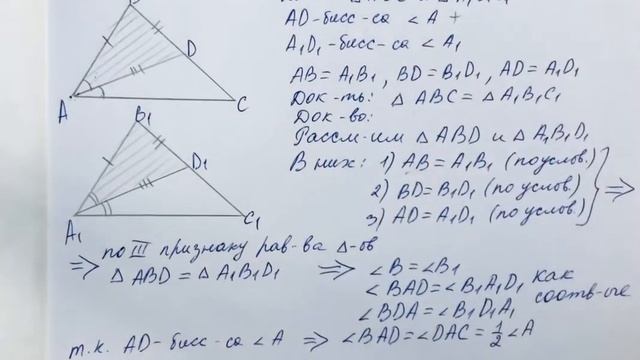 AD-бисс-са ∠A +
A₁D₁-бисс-са ∠A₁
AB=A₁B₁, BD=B₁D₁, AD=A₁D₁
Док-ть: △ABC=△A₁B₁C₁
Док-во:
Рассм-им △ABD и △A₁B₁D₁
В них: 1) AB=A₁B₁ (по услов.)
2) BD=B₁D₁ (по услов.)
3) AD=A₁D₁ (по услов.) ⇒
D
A
C
B₁
D₁
A₁
C₁
⇒ по III признаку рав-ва △-ов
△ABD=△A₁B₁D₁ ⇒ ∠B=∠B₁
∠BAD=∠B₁A₁D₁ как
∠BDA=∠B₁D₁A₁ соотв-ые
т.к. AD-бисс-са ∠A ⇒ ∠BAD=∠DAC=1/2∠A